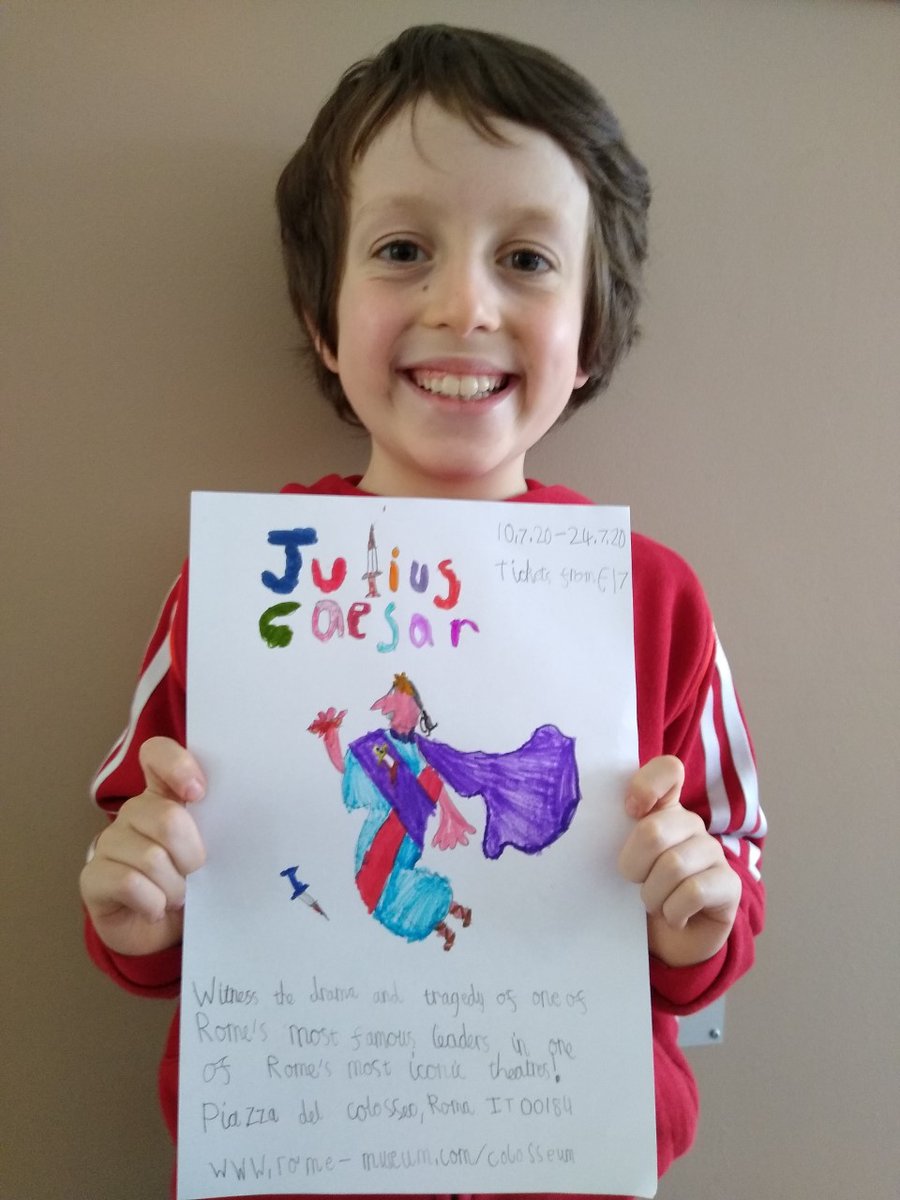 Julius
Caesar
10.7.20-24.7.20
Tickets from €17
Witness the drama and tragedy of one of
Rome's most famous leaders in one
of Rome's most iconic theatres!
Piazza del colosseo, Roma IT 00184
www.rome-museum.com/colosseum